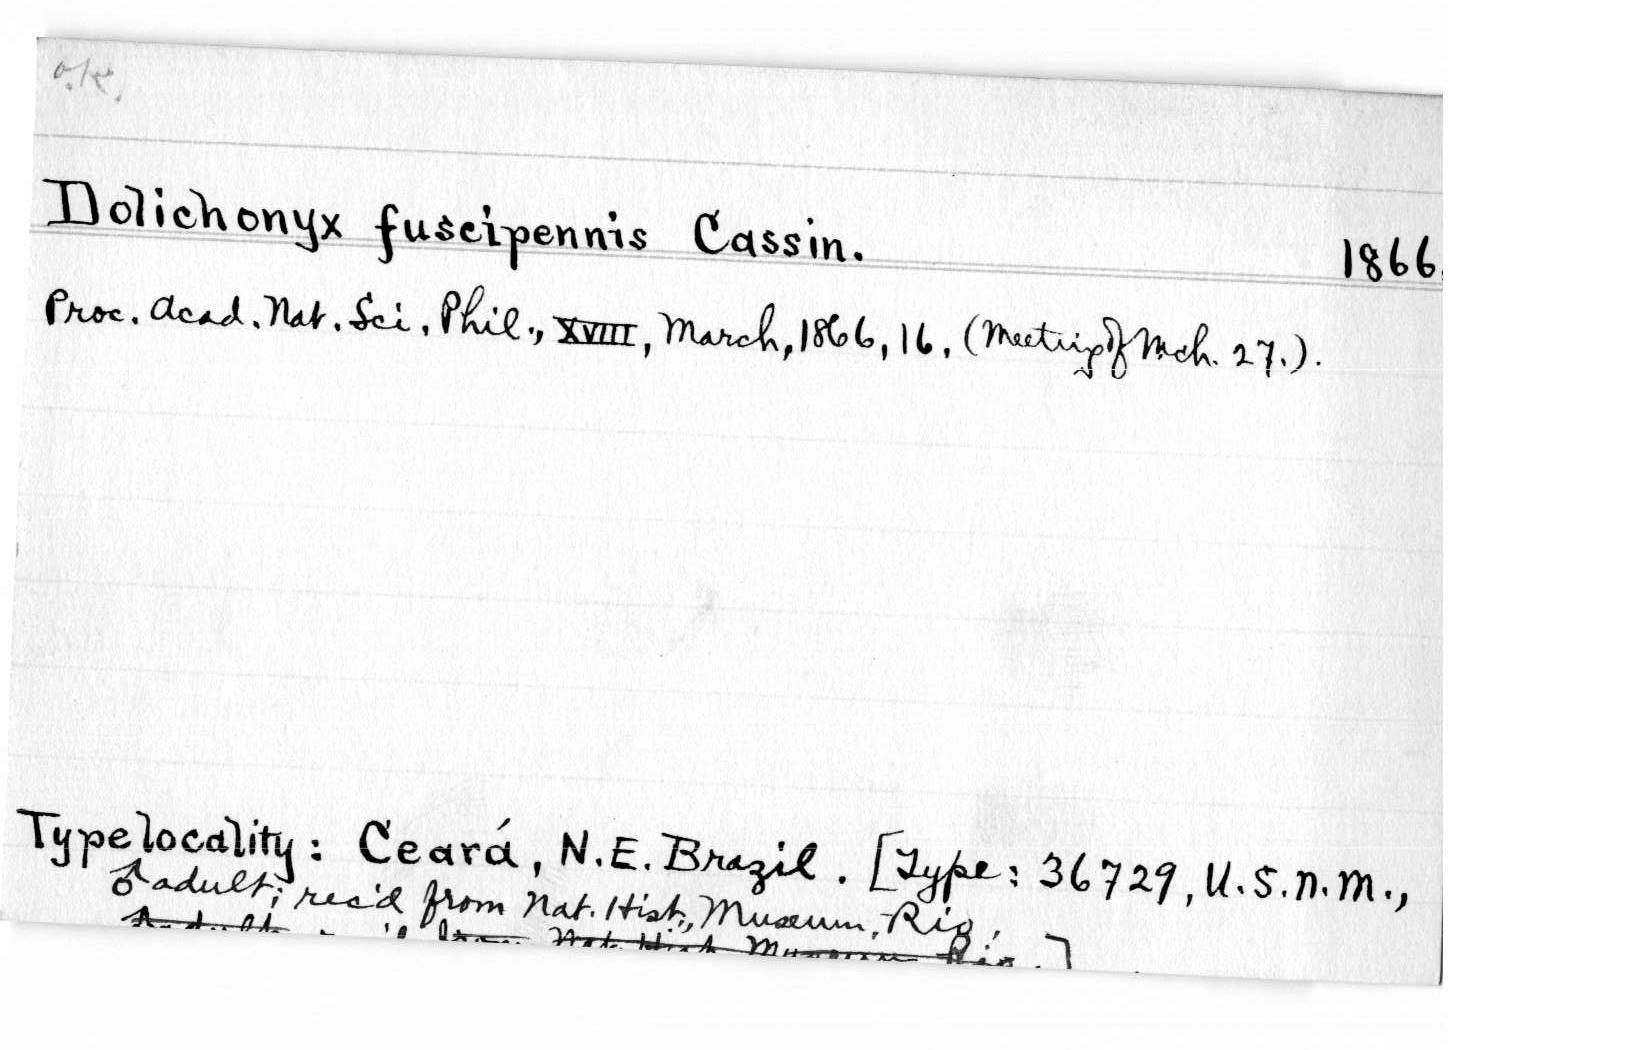 o.k.
Dolichonyx fuscipennis Cassin. 1866.
Proc. Acad. Nat. Sci. Phil., XVIII, March, 1866, 16. (Meeting of Mch. 27.).
Type locality: Ceará, N.E. Brazil. [Type: 36729, U.S.N.M.,
♂ adult; rec'd from Nat. Hist. Museum, Rio,
Adult; rec'd from Nat. Hist. Museum Rio.]